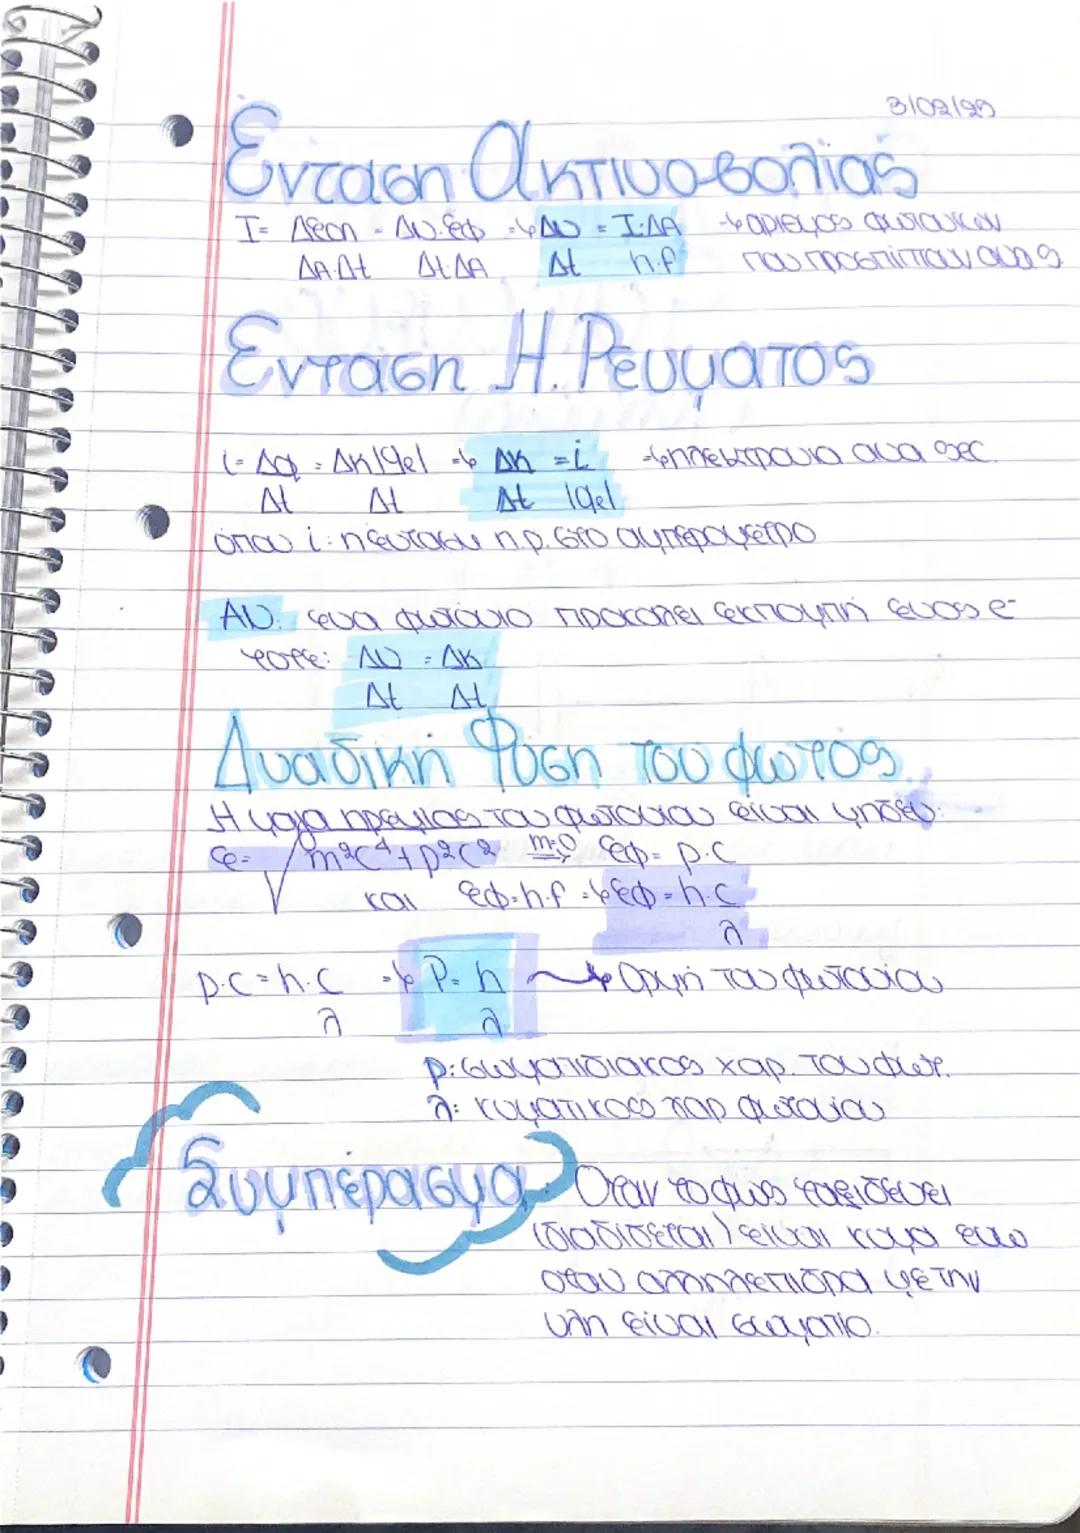 3/02/25
Ένταση Ακτινοβολίας
I = Δεολ = ΔN·εφ => ΔN = I·ΔA → αριθμός φωτονίων
ΔA·Δt Δt·ΔA Δt h·f που προσπίπτουν ανά s
Ένταση Η. Ρεύματος
i = Δq = Δκ|qe| => Δκ = i → ηλεκτρόνια ανά sec.
Δt Δt Δt |qe|
όπου i: η ένταση η.ρ. στο αμπερόμετρο
ΑΝ: ένα φωτόνιο προκαλεί εκπομπή ενός e-
τότε: ΔN = Δκ
Δt Δt
Δυαδική Φύση του φωτός
Η μάζα ηρεμίας του φωτονίου είναι μηδέν:
ε = √m²c⁴ + p²c² m=0 εφ = p·c
και εφ = h·f => εφ = h·c
λ
p·c = h·c => P = h → Ορμή του φωτονίου
λ λ
p: σωματιδιακός χαρ. του φωτ.
λ: κυματικός χαρ φωτονίου
Συμπέρασμα Όταν το φως ταξιδεύει
(διαδίδεται) είναι κύμα ενώ
όταν αλληλεπιδρά με την
ύλη είναι σωμάτιο.